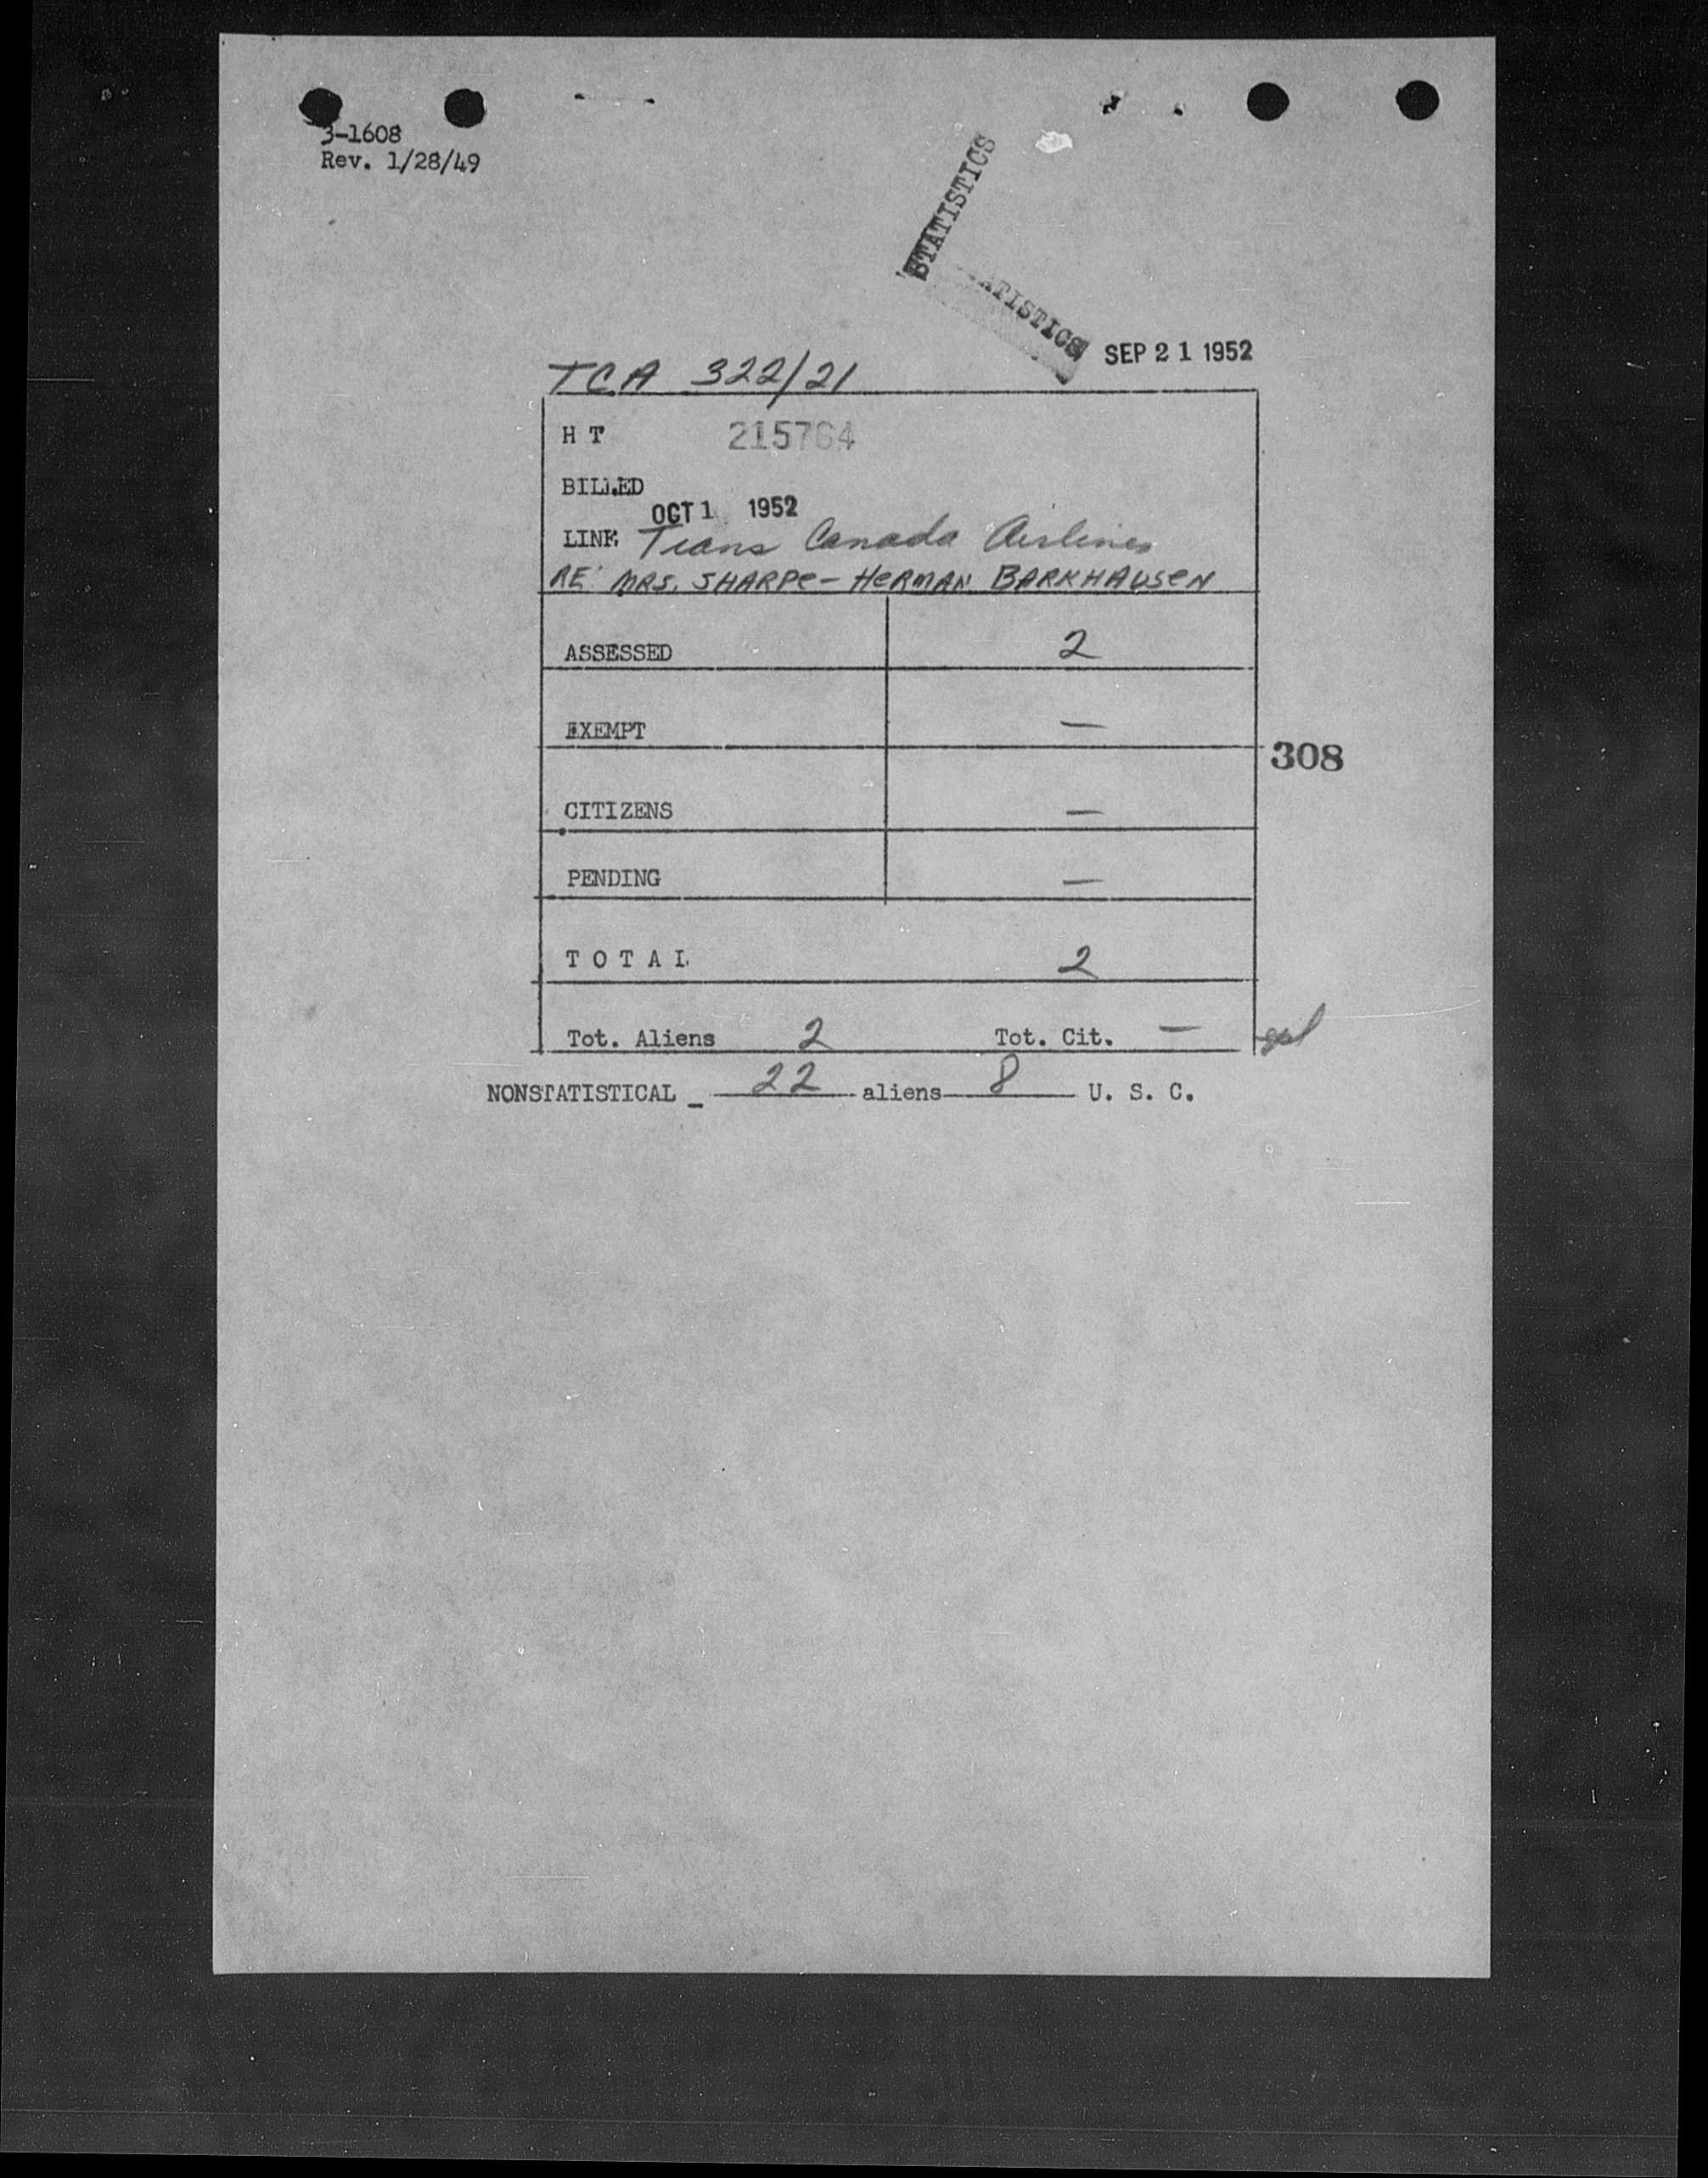 3-1608
Rev. 1/28/49
STATISTICS
ATISTICS
SEP 21 1952
TCA 322/21
H T 215764
BILLED
OCT 1 1952
LINE Trans Canada Airlines
RE: MRS. SHARPE - HERMAN BARKHAUSEN
ASSESSED 2
EXEMPT —
308
CITIZENS —
PENDING —
T O T A L 2
Tot. Aliens 2 Tot. Cit. —
NONSTATISTICAL - 22 aliens 8 U. S. C.